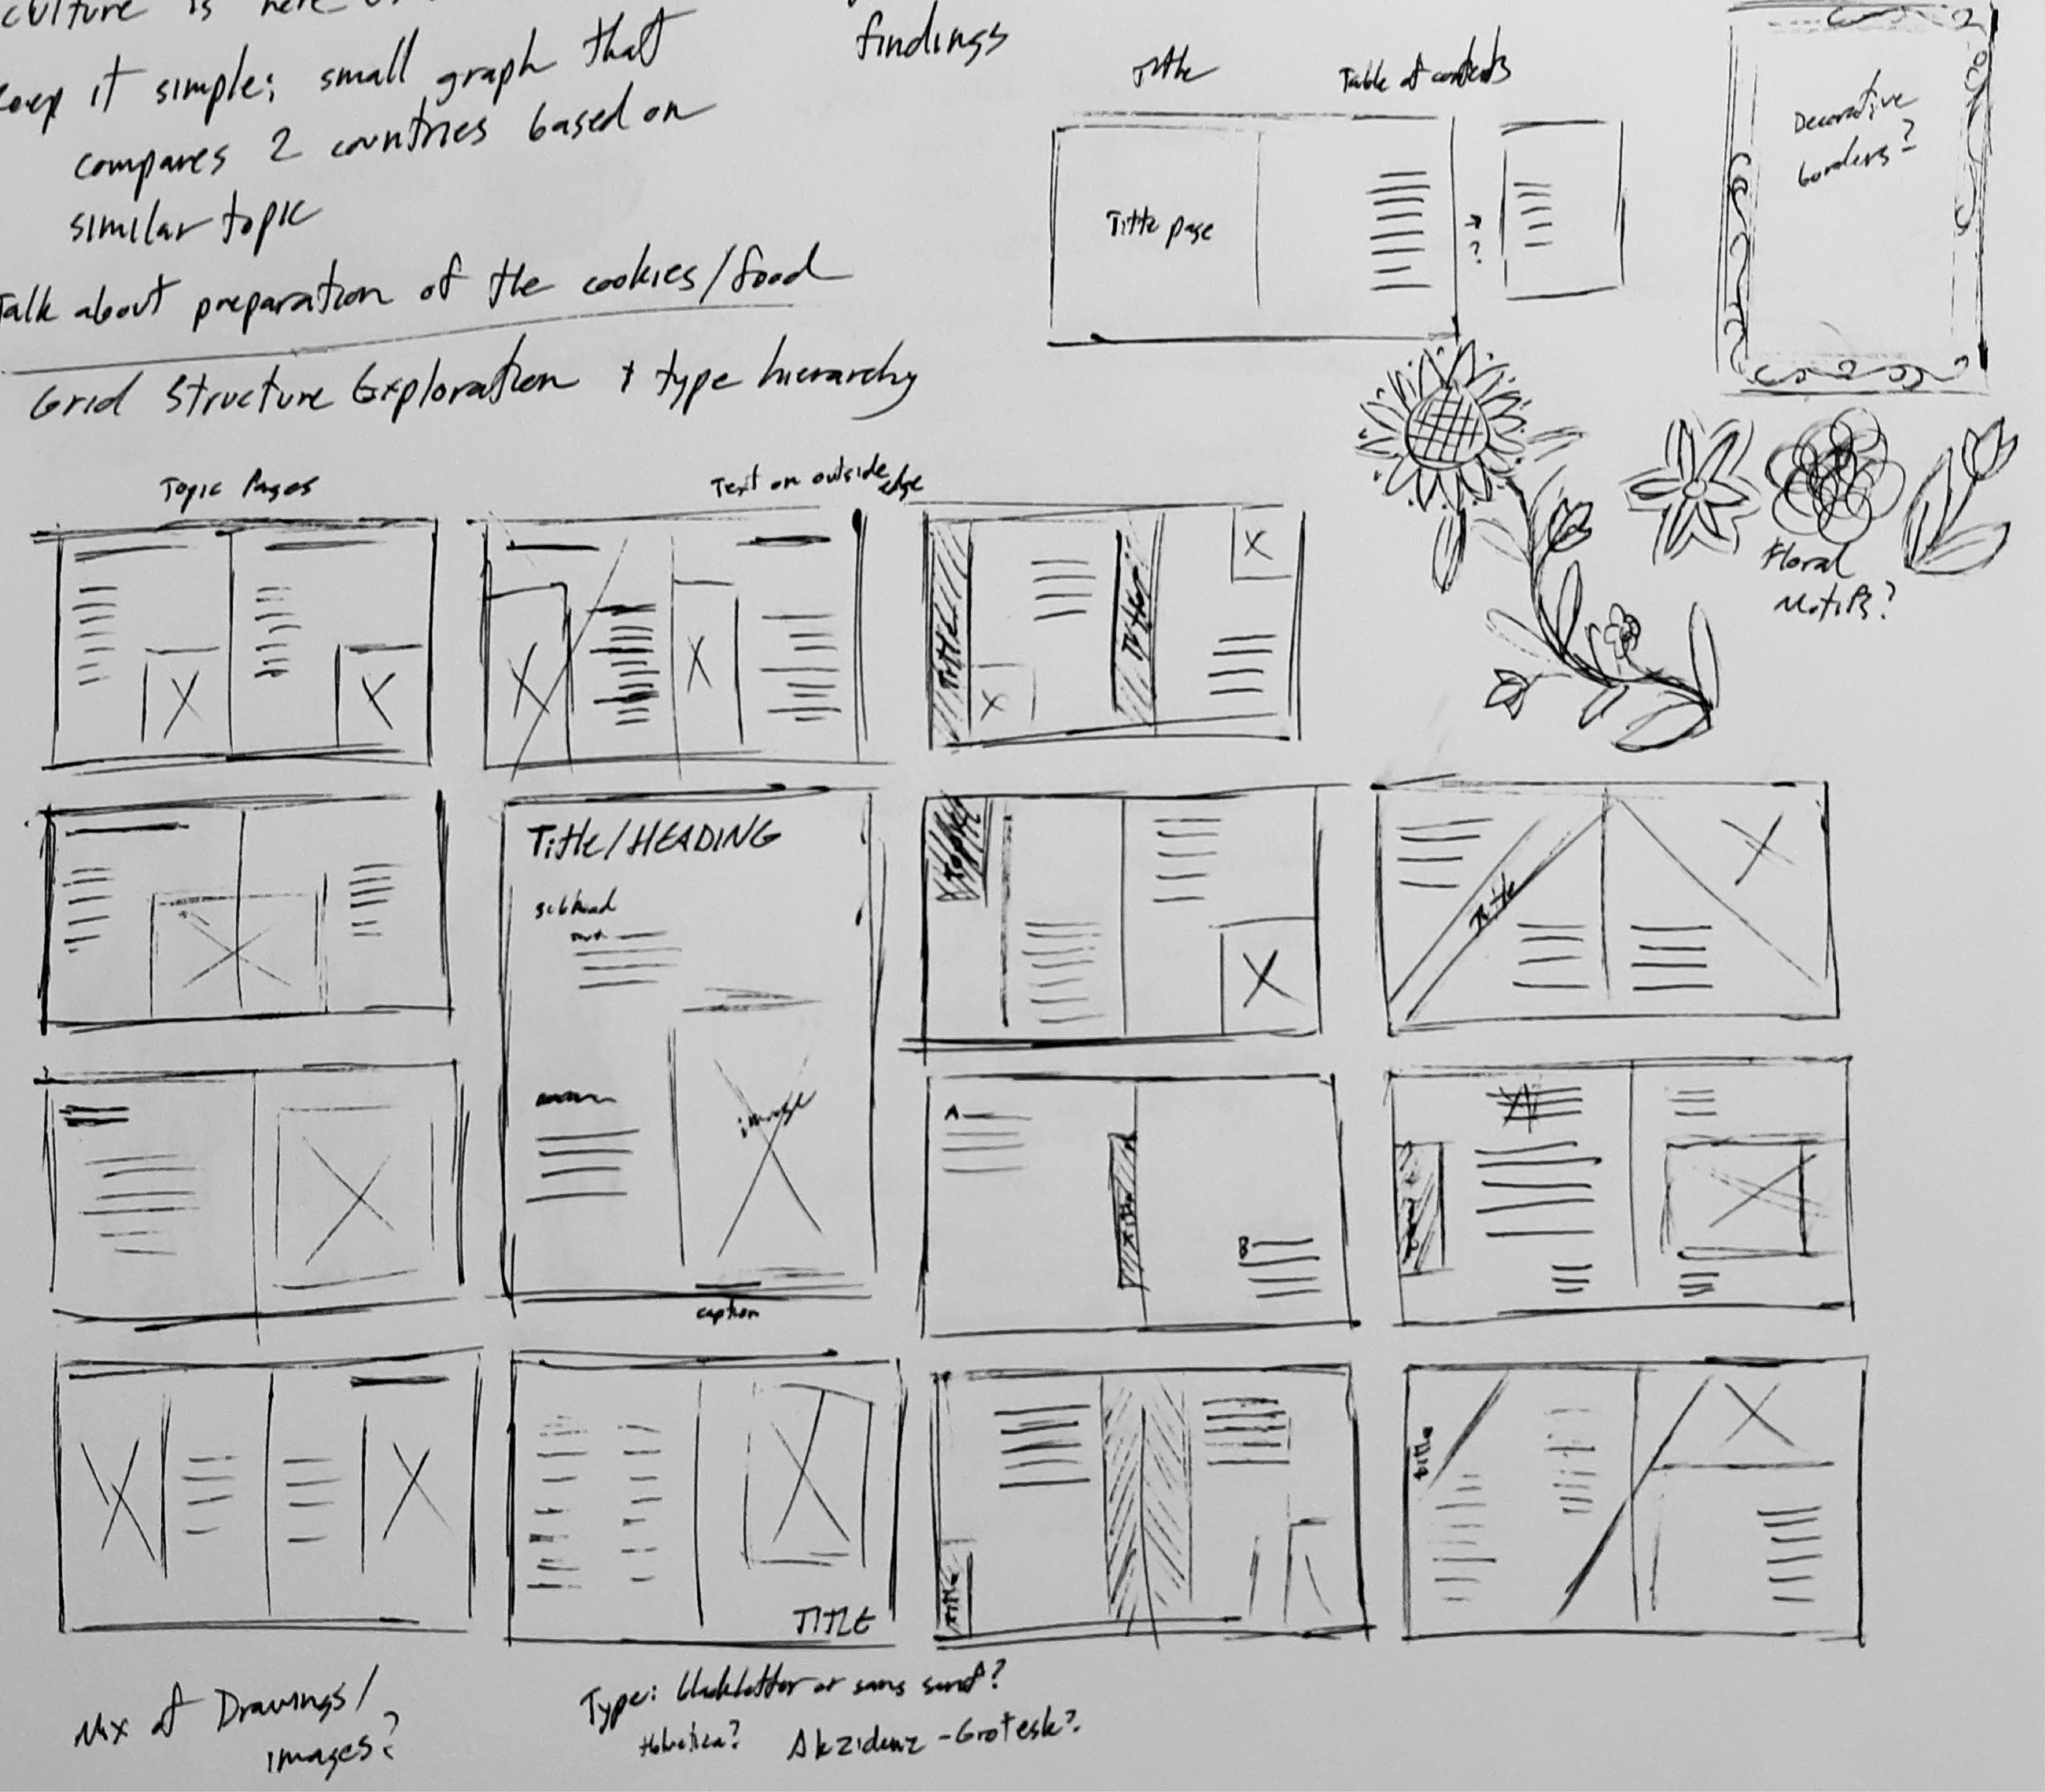 culture is here
keep it simple: small graph that
compares 2 countries based on
similar topic
Talk about preparation of the cookies/food
findings
Title
Table of contents
Title page
→
?
Decorative
borders?
Grid Structure Exploration + type hierarchy
Topic Pages
Text on outside
edge
Title
Title
Floral
Motifs?
Title/HEADING
subhead
image
caption
Title
A
Title
B
TITLE
Title
title
Mix of Drawings/
images?
Type: blackletter or sans serif?
Helvetica? Akzidenz-Grotesk?